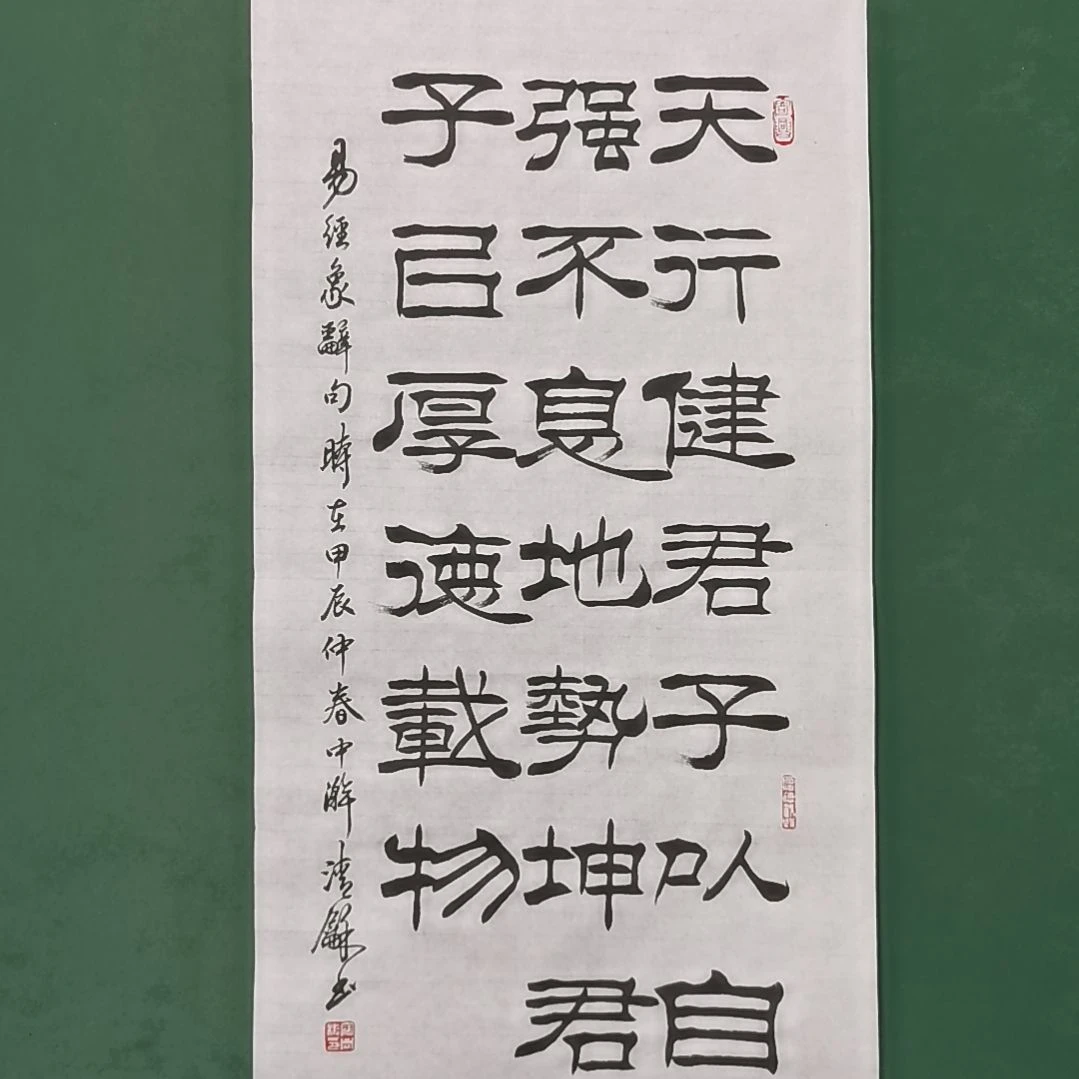 天行健君子以自
强不息地勢坤君
子以厚德載物
易經象辭句時在甲辰仲春中澣清龢書